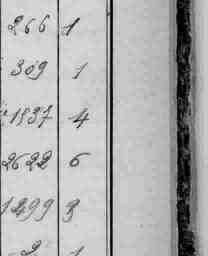 266 1
309 1
1937 4
2622 6
1299 3
2 1